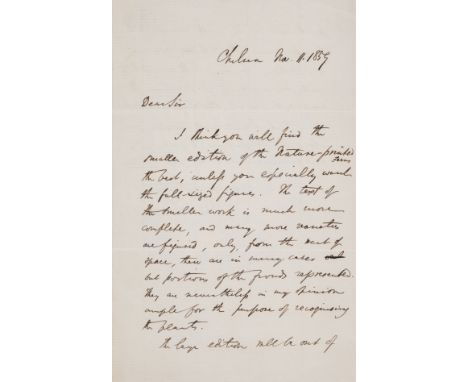 Chelsea Nov. 11. 1859
Dear Sir
I think you will find the
smaller edition of the Nature-printed
Ferns
the best, unless you especially want
the full-sized figures. The text of
the smaller work is much more
complete, and many more varieties
are figured, only, from the want of
space, there are in many cases
but portions of the fronds represented.
They are nevertheless in my opinion
ample for the purpose of recognising
the plants.
The large edition will be out of